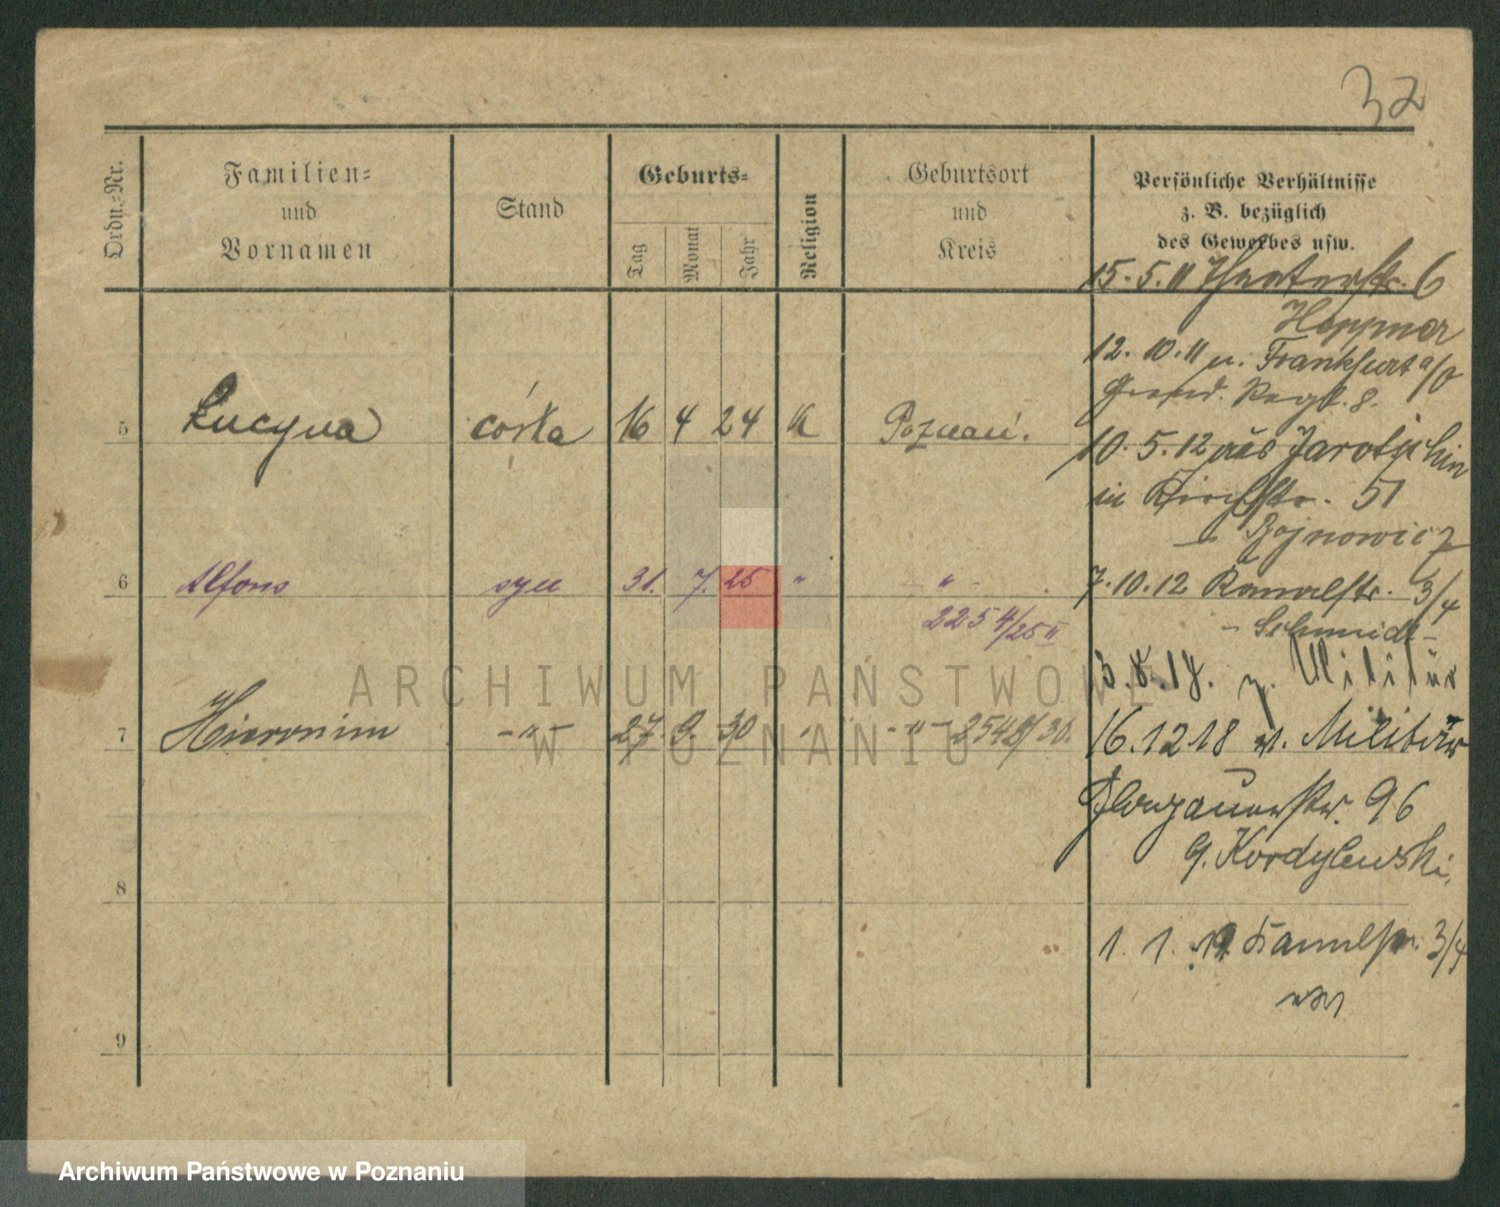 32
Ordn.-Nr.
Familien-
und
Vornamen
Stand
Geburts-
Tag
Monat
Jahr
Religion
Geburtsort
und
Kreis
Persönliche Verhältnisse
z. B. bezüglich
des Gewerbes usw.
5 Lucyna córka 16 4 24 k Poznań.
6 Alfons syn 31. 7. 25 " "
2254/25 II
7 Hieronim -"- 27. 9. 30 " -"- 2548/30.
8
9
15. 5. 11 Theaterstr. 6
Heppner
12. 10. 11 n. Frankfurt a/O
Grend. Regt. 8.
10. 5. 12 aus Jarotschin
in Kirchstr. 51
- Bojnowicz
7. 10. 12 Kanalstr. 3/4
- Schmidt -
3. 8. 18. z. Militär
16. 12 18 v. Militär
Glogauerstr. 96
G. Kordylewski,
1. 1. 19 Kanalstr. 3/4
ARCHIWUM PAŃSTWOWE
W POZNANIU
Archiwum Państwowe w Poznaniu